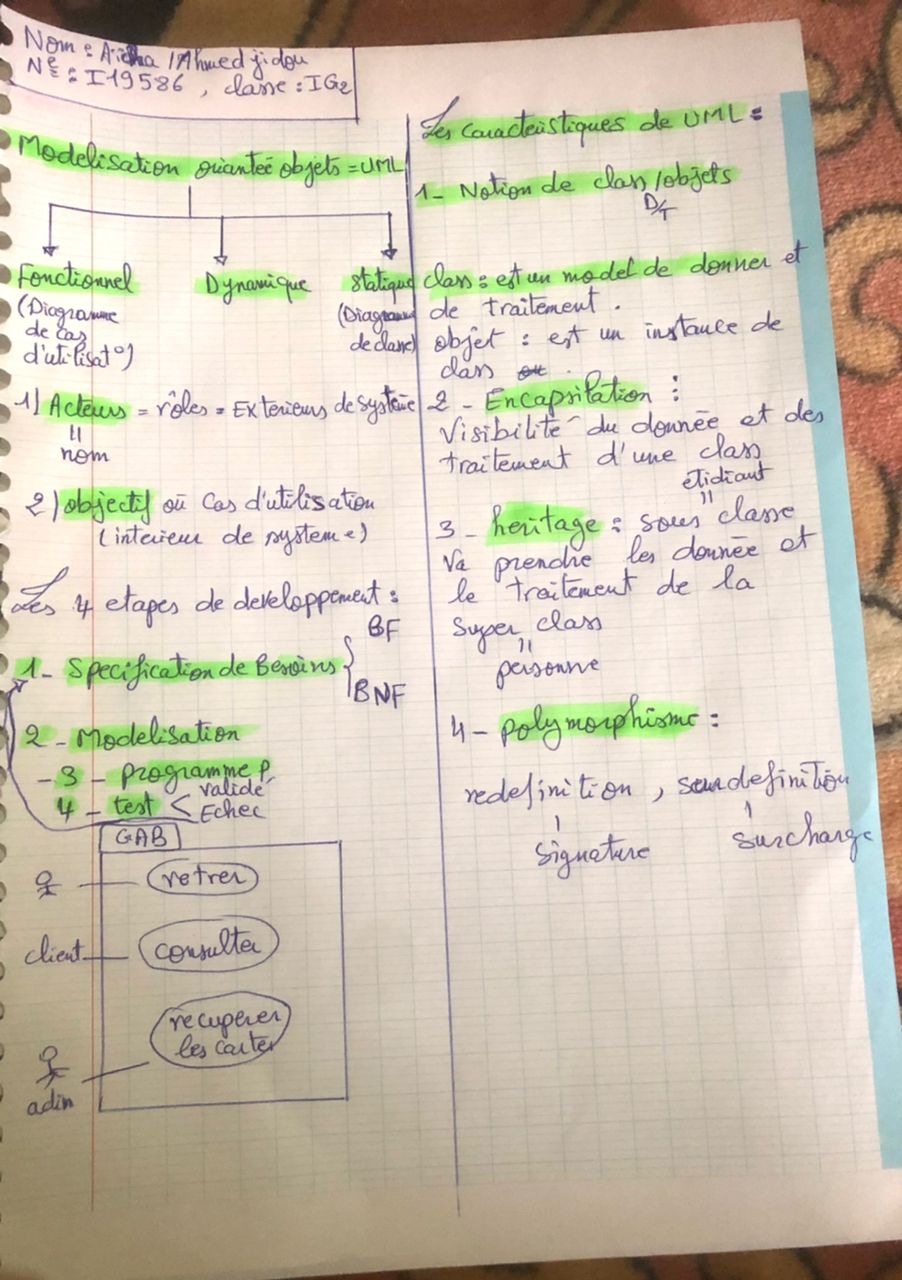 Nom : Aicha /Ahmed jidou
N° : I19586 , classe : IG2
Modelisation orientée objets = UML
Fonctionnel
(Diagramme
de cas
d'utilisat°)
Dynamique
Statique
(Diagramme
de classe)
1) Acteurs = rôles = Exterieurs de Système
=
nom
2) objectif où Cas d'utilisation
(interieur de system e)
Les 4 etapes de developpement :
1 - Specification de Besoins { BF
BNF
2 - Modelisation
- 3 - programme p,
4 - test < valide
Echec
GAB
retrer
client
consulter
recuperer
les cartes
adin
Les caracteristiques de UML :
1 - Notion de class /objets
D/T
class : est un model de donner et
de traitement .
objet : est un instance de
class
2 - Encapsilation :
Visibilité du donnée et des
traitement d'une class
etidiant
=
3 - heritage : sous classe
Va prendre les donnée et
le traitement de la
Super class
=
personne
4 - polymorphisme :
redefinition , surdefinition
signature
surcharge